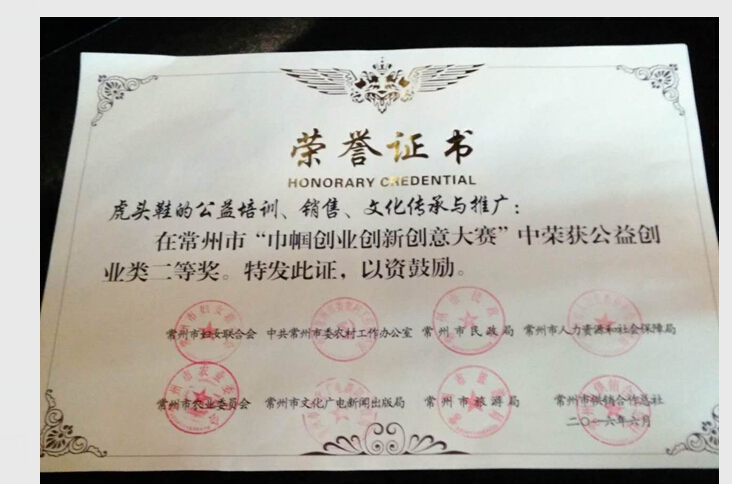 荣誉证书
HONORARY CREDENTIAL
虎头鞋的公益培训、销售、文化传承与推广：
在常州市“巾帼创业创新创意大赛”中荣获公益创
业类二等奖。特发此证，以资鼓励。
常州市妇女联合会 中共常州市委农村工作办公室 常州市民政局 常州市人力资源和社会保障局
常州市农业委员会 常州市文化广电新闻出版局 常州市旅游局 常州市供销合作总社
二〇一六年六月